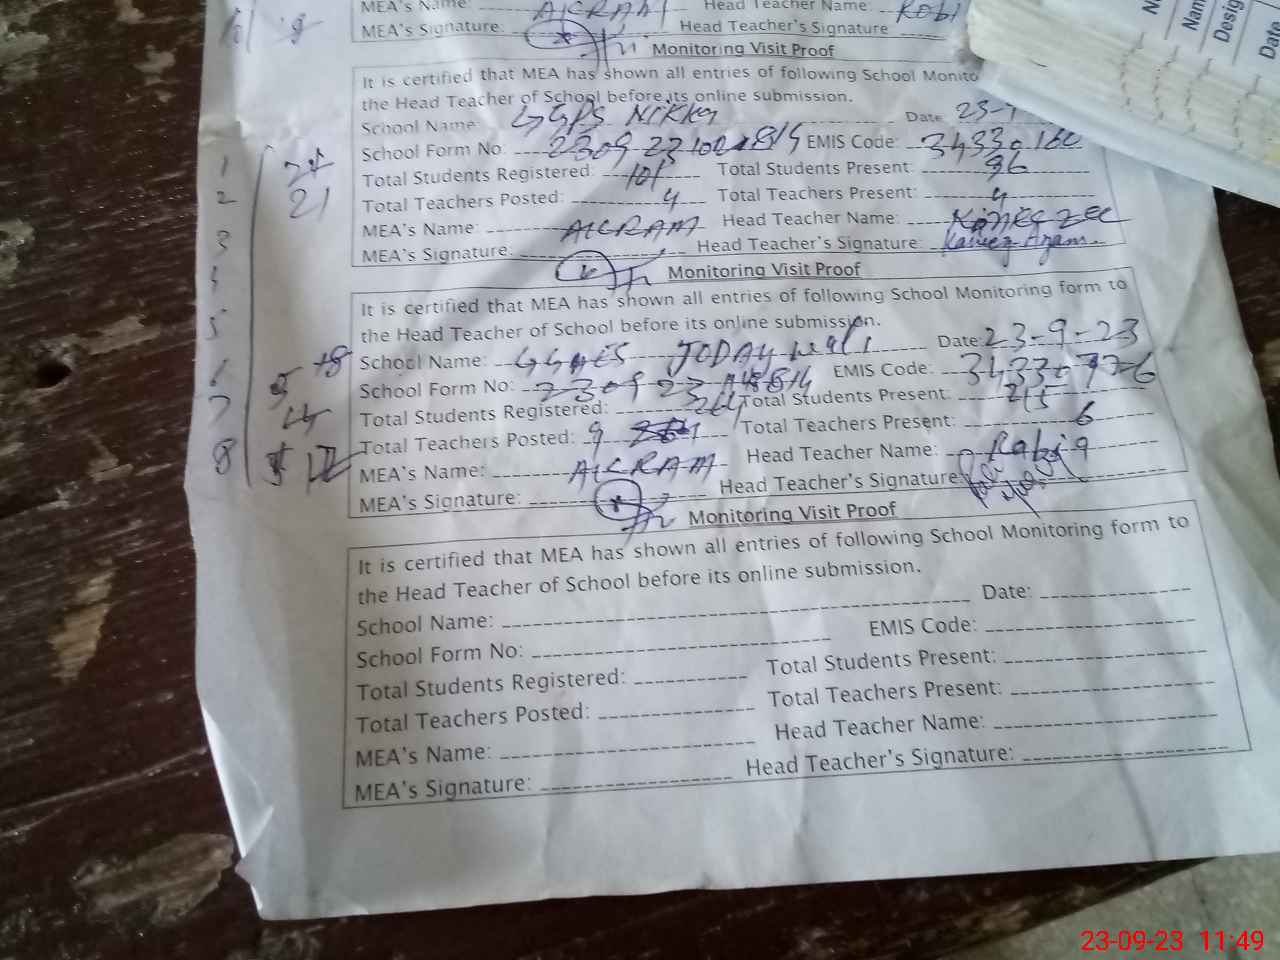 MEA's Name: AKRAM Head Teacher Name:
MEA's Signature: Head Teacher's Signature
Monitoring Visit Proof
It is certified that MEA has shown all entries of following School Monito
the Head Teacher of School before its online submission.
School Name: GGPS Nikky Date 23-
School Form No: EMIS Code: 34330160
Total Students Registered: 101 Total Students Present: 96
Total Teachers Posted: 4 Total Teachers Present: 4
MEA's Name: AKRAM Head Teacher Name:
MEA's Signature: Head Teacher's Signature: Kaneez Azam
Monitoring Visit Proof
It is certified that MEA has shown all entries of following School Monitoring form to
the Head Teacher of School before its online submission.
School Name: GGMES JODAY wali Date: 23-9-23
School Form No: EMIS Code:
Total Students Registered: 264 Total Students Present: 215
Total Teachers Posted: 9 Total Teachers Present: 6
MEA's Name: AKRAM Head Teacher Name: Rabia
MEA's Signature: Head Teacher's Signature
Monitoring Visit Proof
It is certified that MEA has shown all entries of following School Monitoring form to
the Head Teacher of School before its online submission.
School Name: Date:
School Form No: EMIS Code:
Total Students Registered: Total Students Present:
Total Teachers Posted: Total Teachers Present:
MEA's Name: Head Teacher Name:
MEA's Signature: Head Teacher's Signature:
1
2 21
3
4
5
6
7
8
Nam
Desig
Date
23-09-23 11:49